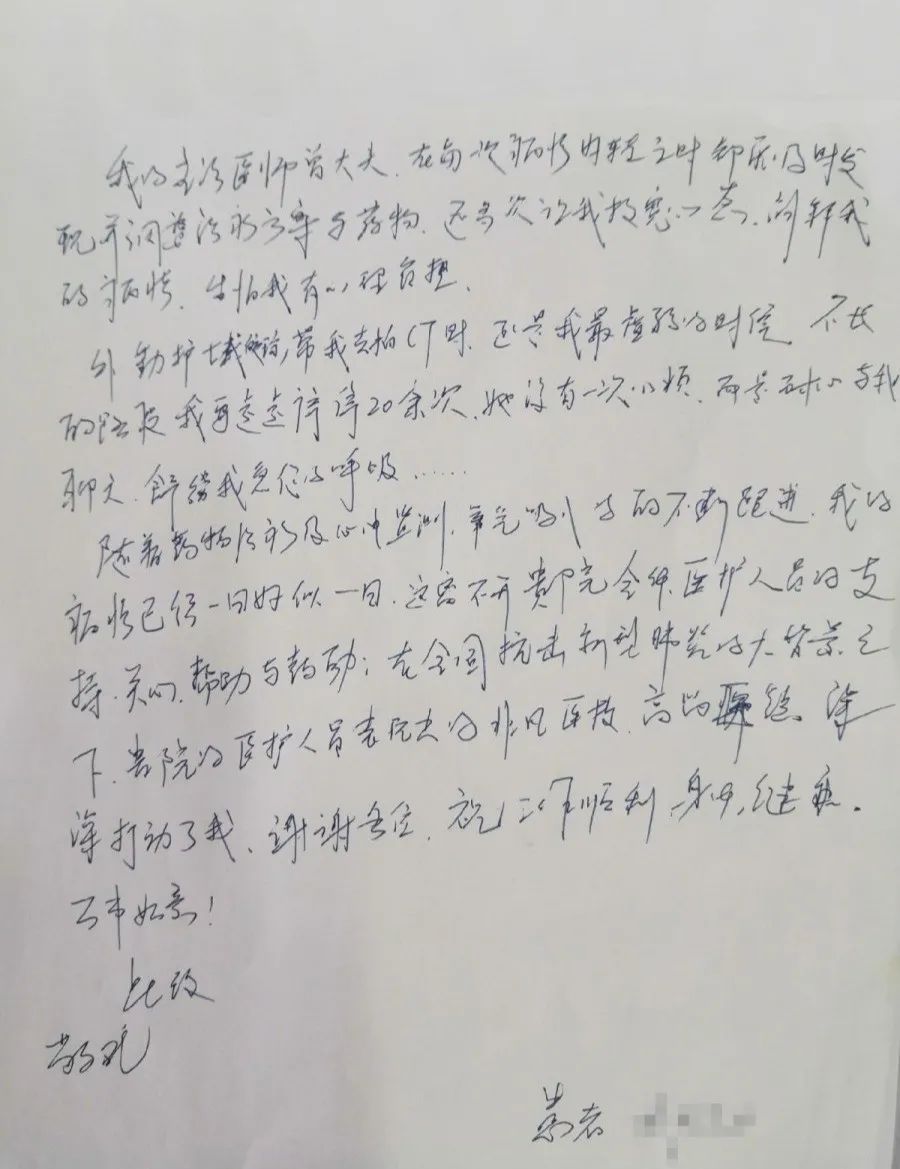 我的主治医师曾大夫，在每次病情出现之时都能及时发
现并调整治疗方案与药物，还多次让我放宽心态，向解我
的病情，生怕我有心理负担。
外勤护士带我去拍CT时，还是我最虚弱的时候，不长
的路段我再走走停停20余次，她没有一次心烦，而是耐心与我
聊天，舒缓我急促的呼吸……
随着药物治疗及心电监测、氧气吸入等的不断跟进，我的
病情已经一日好似一日，这离不开贵院全体医护人员的支
持、关心、帮助与鼓励；在全国抗击新型肺炎的大背景之
下，贵院的医护人员表现出的非凡医技、高尚医德，深
深打动了我，谢谢各位，祝工作顺利，身体健康，
万事如意！
此致
敬礼
患者